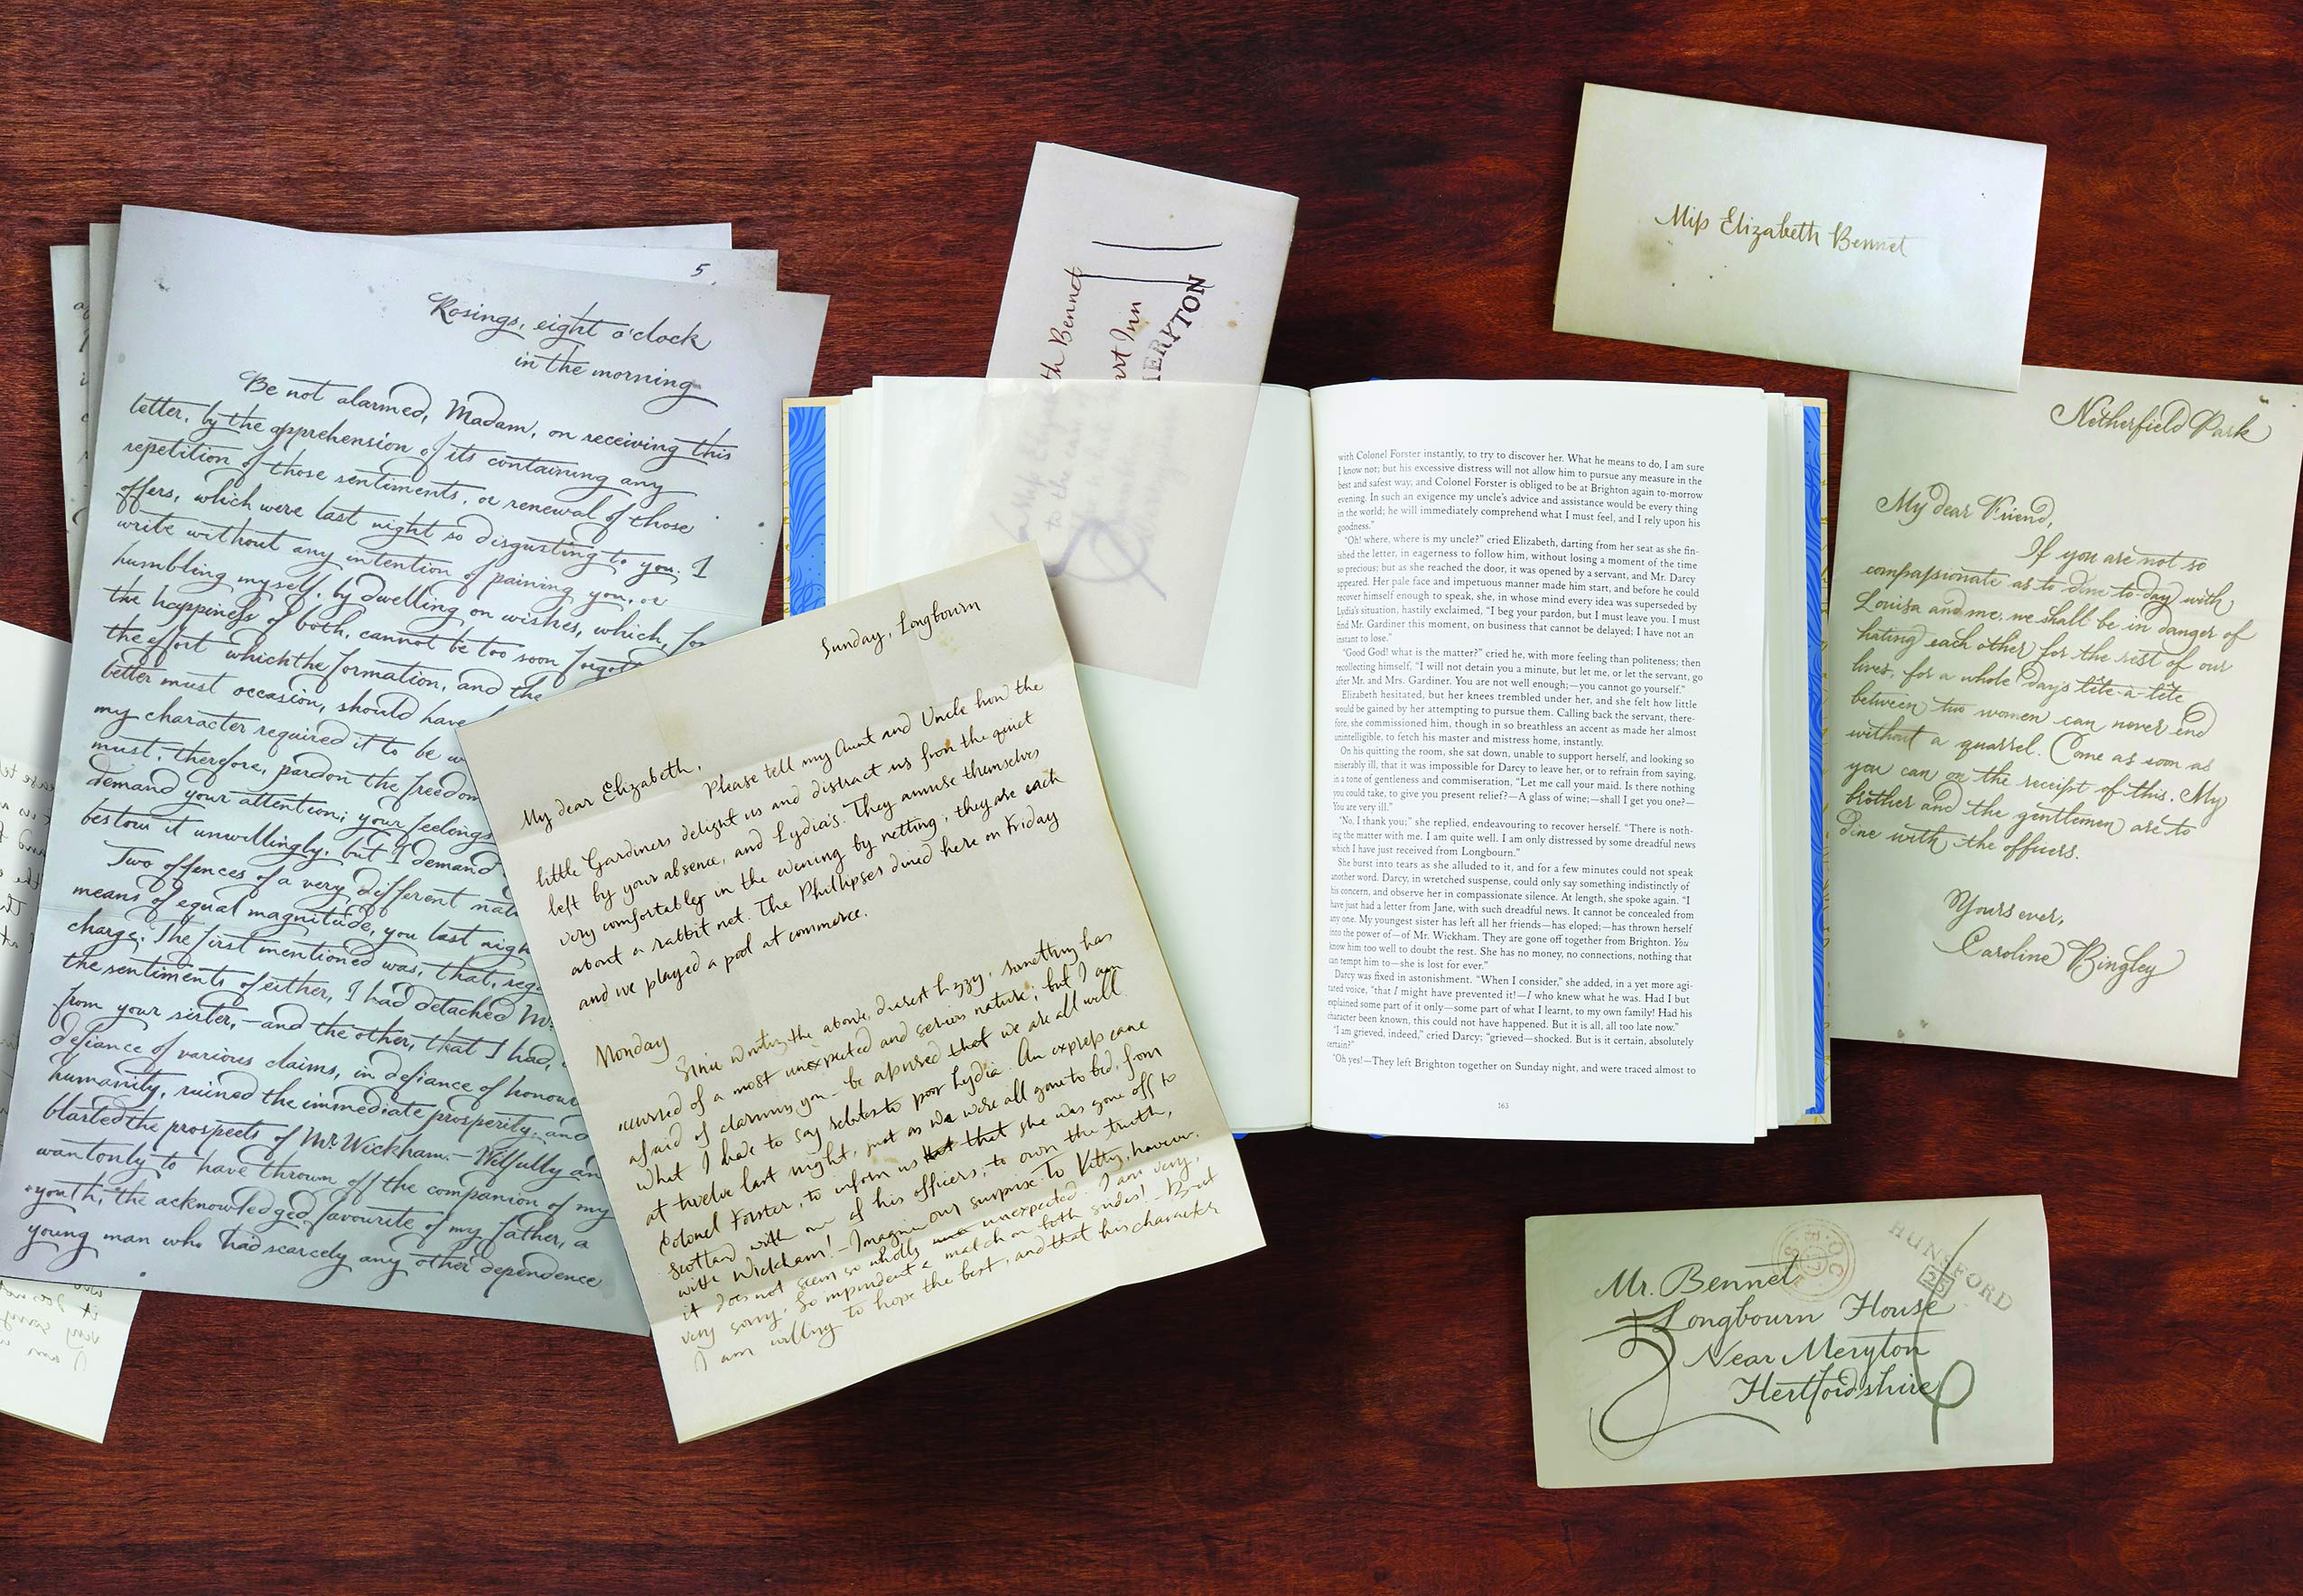 5
Rosings, eight o'clock
in the morning
Be not alarmed, Madam, on receiving this
letter, by the apprehension of its containing any
repetition of those sentiments, or renewal of those
offers, which were last night so disgusting to you. I
write without any intention of paining you, or
humbling myself, by dwelling on wishes, which, for
the happiness of both, cannot be too soon forgott
the effort which the formation, and the
better must occasion, should have
my character required it to be w
must, therefore, pardon the freedom
demand your attention; your feelings
bestow it unwillingly, but I demand
Two offences of a very different nat
means of equal magnitude, you last nigh
charge. The first mentioned was, that, rega
the sentiments of either, I had detached Mr.
from your sister,—and the other, that I had,
defiance of various claims, in defiance of honour
humanity, ruined the immediate prosperity, and
blasted the prospects of Mr. Wickham.—Wilfully an
wantonly to have thrown off the companion of my
youth, the acknowledged favourite of my father, a
young man who had scarcely any other dependence
Sunday, Longbourn
My dear Elizabeth,
Please tell my Aunt and Uncle how the
little Gardiners delight us and distract us from the quiet
left by your absence, and Lydia's. They amuse themselves
very comfortably in the evening by netting; they are each
about a rabbit net. The Phillipses dined here on Friday
and we played a pool at commerce.
Monday
Since writing the above, dearest Lizzy, something has
occurred of a most unexpected and serious nature; but I am
afraid of alarming you—be assured that we are all well.
What I have to say relates to poor Lydia. An express came
at twelve last night, just as we were all gone to bed, from
Colonel Forster, to inform us that that she was gone off to
Scotland with one of his officers; to own the truth,
with Wickham!—Imagine our surprise. To Kitty, however,
it does not seem so wholly unexpected. I am very,
very sorry. So imprudent a match on both sides!—But
I am willing to hope the best, and that his character
th Bennet
art Inn
MERYTON
with Colonel Forster instantly, to try to discover her. What he means to do, I am sure
I know not; but his excessive distress will not allow him to pursue any measure in the
best and safest way, and Colonel Forster is obliged to be at Brighton again to-morrow
evening. In such an exigence my uncle's advice and assistance would be every thing
in the world; he will immediately comprehend what I must feel, and I rely upon his
goodness."
"Oh! where, where is my uncle?" cried Elizabeth, darting from her seat as she fin-
ished the letter, in eagerness to follow him, without losing a moment of the time
so precious; but as she reached the door, it was opened by a servant, and Mr. Darcy
appeared. Her pale face and impetuous manner made him start, and before he could
recover himself enough to speak, she, in whose mind every idea was superseded by
Lydia's situation, hastily exclaimed, "I beg your pardon, but I must leave you. I must
find Mr. Gardiner this moment, on business that cannot be delayed; I have not an
instant to lose."
"Good God! what is the matter?" cried he, with more feeling than politeness; then
recollecting himself, "I will not detain you a minute, but let me, or let the servant, go
after Mr. and Mrs. Gardiner. You are not well enough;—you cannot go yourself."
Elizabeth hesitated, but her knees trembled under her, and she felt how little
would be gained by her attempting to pursue them. Calling back the servant, there-
fore, she commissioned him, though in so breathless an accent as made her almost
unintelligible, to fetch his master and mistress home, instantly.
On his quitting the room, she sat down, unable to support herself, and looking so
miserably ill, that it was impossible for Darcy to leave her, or to refrain from saying,
in a tone of gentleness and commiseration, "Let me call your maid. Is there nothing
you could take, to give you present relief?—A glass of wine;—shall I get you one?—
You are very ill."
"No, I thank you;" she replied, endeavouring to recover herself. "There is noth-
ing the matter with me. I am quite well. I am only distressed by some dreadful news
which I have just received from Longbourn."
She burst into tears as she alluded to it, and for a few minutes could not speak
another word. Darcy, in wretched suspense, could only say something indistinctly of
his concern, and observe her in compassionate silence. At length, she spoke again. "I
have just had a letter from Jane, with such dreadful news. It cannot be concealed from
any one. My youngest sister has left all her friends—has eloped;—has thrown herself
into the power of—of Mr. Wickham. They are gone off together from Brighton. You
know him too well to doubt the rest. She has no money, no connections, nothing that
can tempt him to—she is lost for ever."
Darcy was fixed in astonishment. "When I consider," she added, in a yet more agi-
tated voice, "that I might have prevented it!—I who knew what he was. Had I but
explained some part of it only—some part of what I learnt, to my own family! Had his
character been known, this could not have happened. But it is all, all too late now."
"I am grieved, indeed," cried Darcy; "grieved—shocked. But is it certain, absolutely
certain?"
"Oh yes!—They left Brighton together on Sunday night, and were traced almost to
163
Miss Elizabeth Bennet
Netherfield Park
My dear Friend,
If you are not so
compassionate as to dine to-day with
Louisa and me, we shall be in danger of
hating each other for the rest of our
lives, for a whole day's tête-à-tête
between two women can never end
without a quarrel. Come as soon as
you can on the receipt of this. My
brother and the gentlemen are to
dine with the officers.
Yours ever,
Caroline Bingley
HUNSFORD
Mr. Bennet
Longbourn House
Near Meryton
Hertfordshire